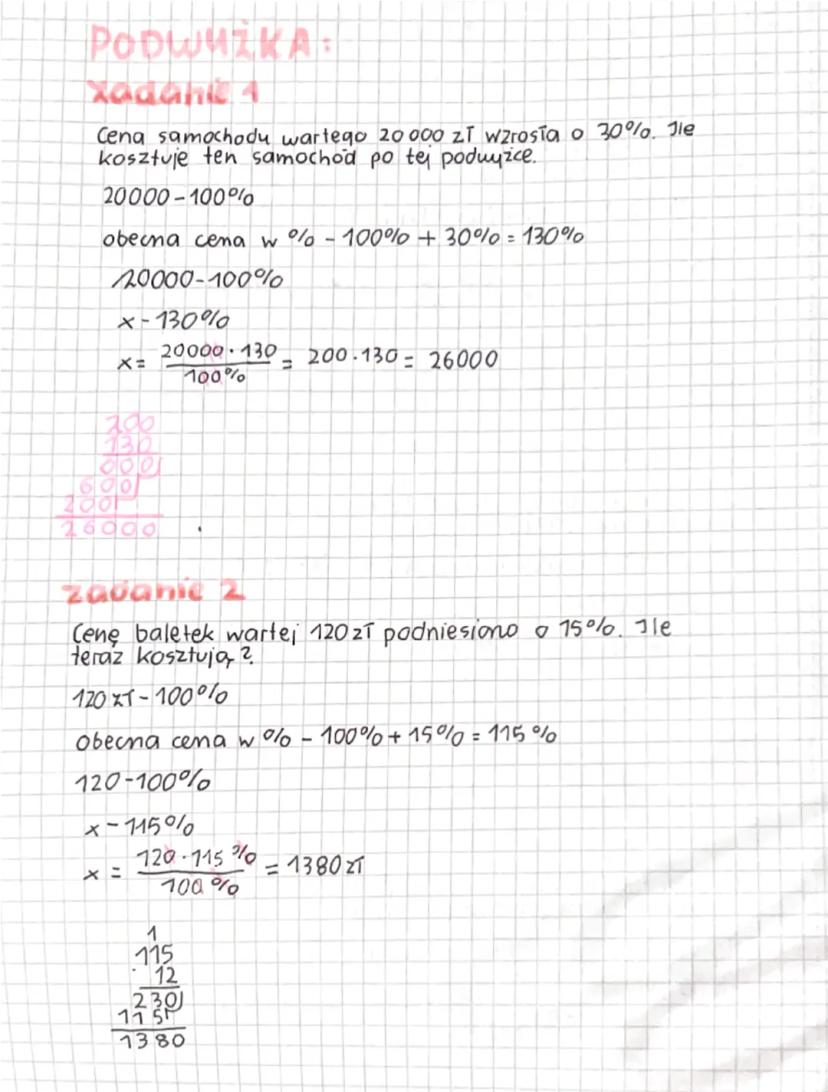 PODWYŻKA:
zadanie 1
Cena samochodu wartego 20 000 zł wzrosła o 30%. Ile
kosztuje ten samochód po tej podwyżce.
20000-100%
obecna cena w % - 100% + 30% = 130%
20000-100%
x-130%
x= 20000·130 = 200·130= 26000
100%
200
130
000
600
200
26000
zadanie 2
Cenę baletek wartej 120 zł podniesiono o 15%. Ile
teraz kosztują?
120 zł-100%
obecna cena w % - 100% + 15% = 115 %
120-100%
x-115%
x = 120·115 % = 1380 zł
100 %
1
115
· 12
230
115
1380